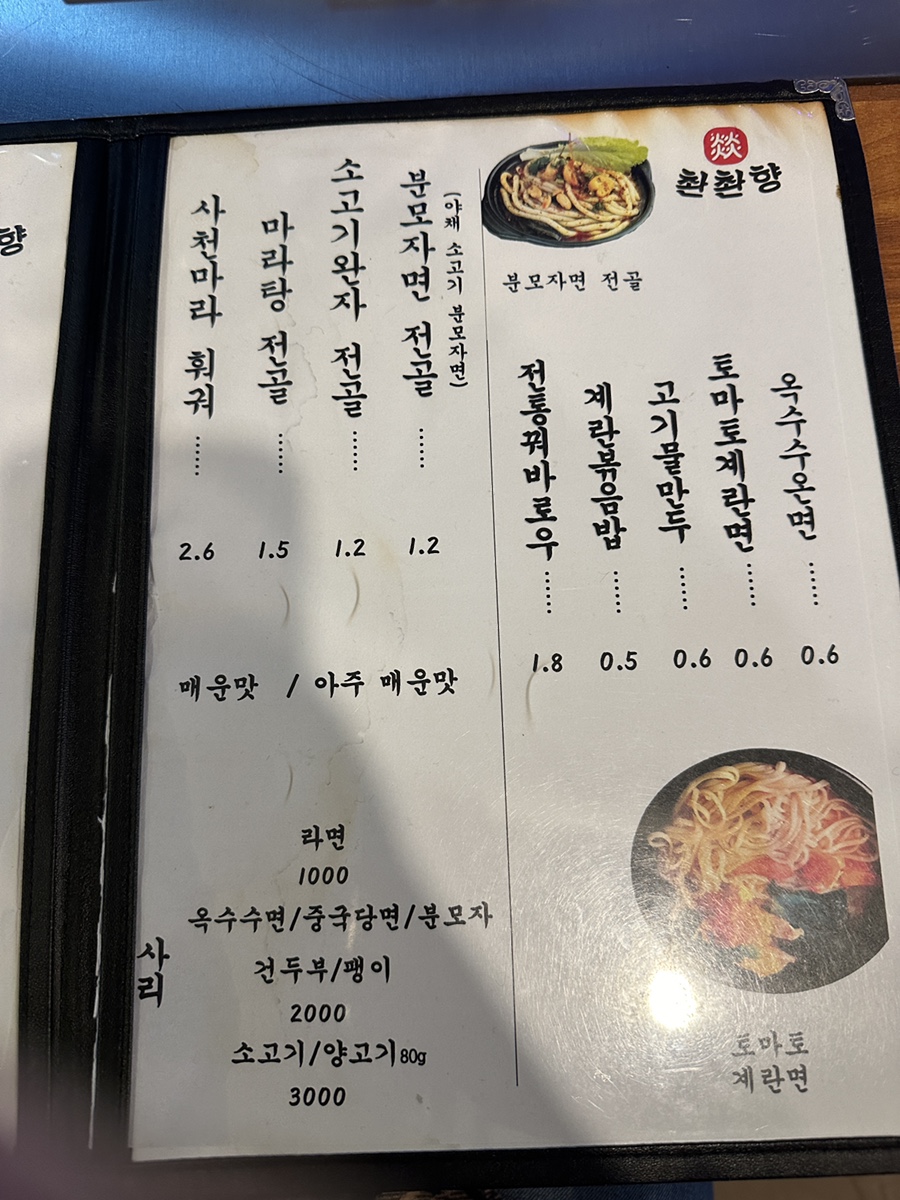 향
사천마라 훠궈 ...... 2.6
마라탕 전골 ...... 1.5
소고기완자 전골 ...... 1.2
분모자면 전골 ...... 1.2
(야채 소고기 분모자면)
매운맛 / 아주 매운맛
사리
라면
1000
옥수수면/중국당면/분모자
건두부/팽이
2000
소고기/양고기80g
3000
燚
촨촨향
분모자면 전골
전통꿔바로우 ...... 1.8
계란볶음밥 ...... 0.5
고기물만두 ...... 0.6
토마토계란면 ...... 0.6
옥수수온면 ...... 0.6
토마토
계란면